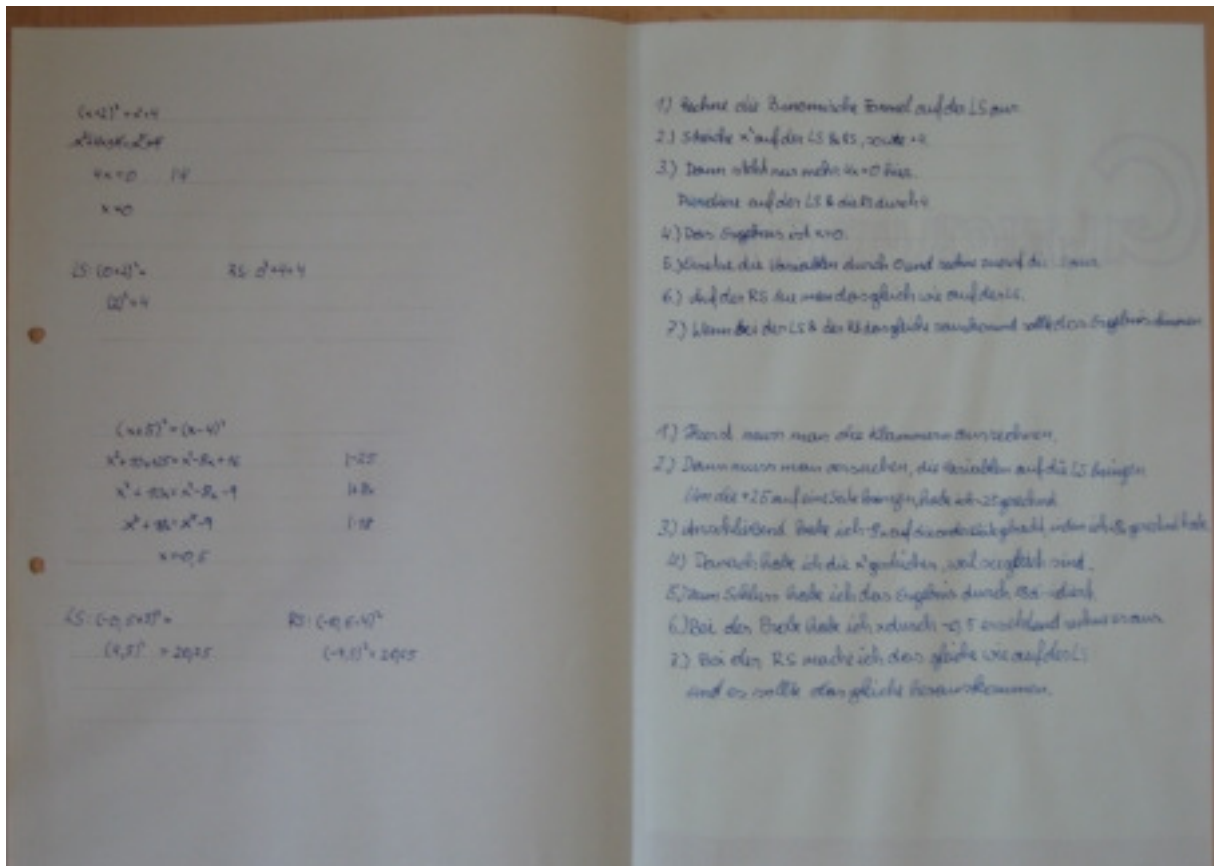 (x+2)² = x²+4
x²+4x+4=x²+4
4x=0 |:4
x=0
LS: (0+2)²= RS: 0²+4=4
(2)²=4
(x+5)²=(x-4)²
x²+10x+25=x²-8x+16 |-25
x²+10x=x²-8x-9 |+8x
x²+18x=x²-9 |:18
x=-0,5
LS: (-0,5+5)²= RS: (-0,5-4)²
(4,5)² = 20,25 (-4,5)²=20,25
1) Rechne die Binomische Formel auf der LS aus
2.) Streiche x² auf der LS & RS, sowie +4
3.) Dann steht nur mehr 4x=0 hier.
Dividiere auf der LS & die RS durch 4
4.) Das Ergebnis ist x=0.
5.) die Variablen durch 0 und rechne die aus
6.) Auf der RS man das gleich wie auf der LS.
7.) Wenn bei der LS & der RS das gleiche rauskommt sollte das Ergebnis stimmen
1.) muss man die Klammern ausrechnen.
2.) Dann muss man versuchen, die Variablen auf die LS bringen
Um die +25 auf eine Seite bringen, habe ich -25 gerechnet
3.) Anschließend habe ich -8x auf die andere Seite gebracht, indem ich gerechnet habe
4.) Danach habe ich die x² gestrichen, weil sie gleich sind.
5.) Zum Schluss habe ich das Ergebnis durch 18
6.) Bei der Probe habe ich x durch -0,5 und aus
7.) Bei der RS mache ich das gleiche wie auf der LS
und es sollte das gleiche herauskommen.